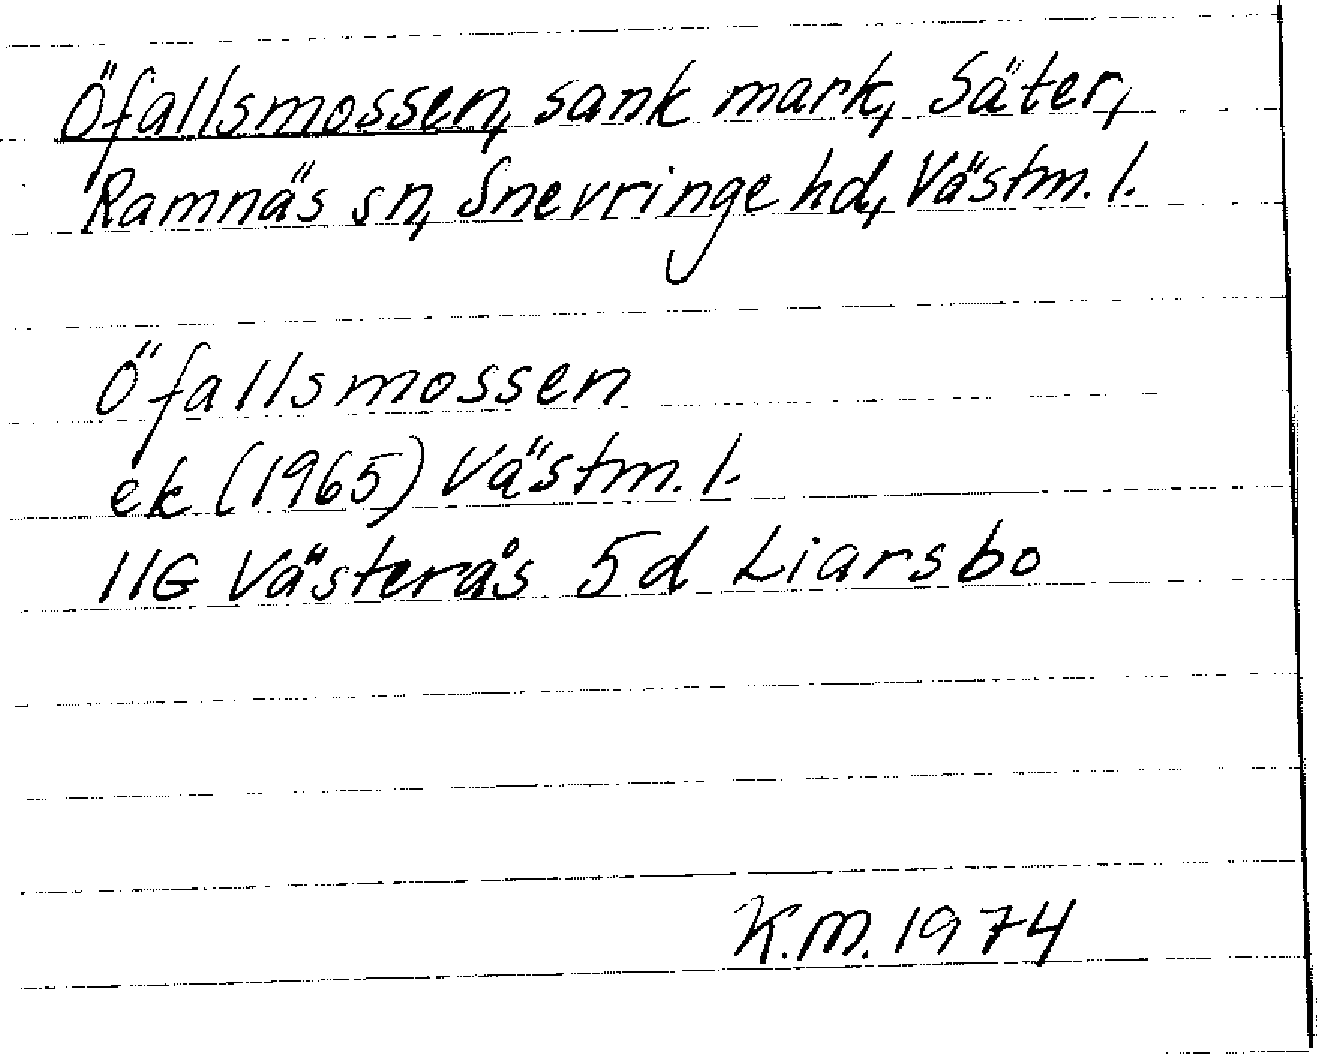 Öfallsmossen, sank mark, Säter,
Ramnäs sn, Snevringe hd, Västm. l.
Öfallsmossen
ek (1965) Västm. l.
11G Västerås 5d Liarsbo
K.M. 1974